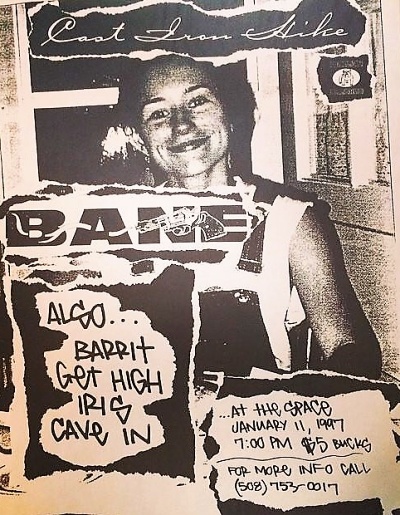 Cast Iron Hike
BANE
ALSO...
BARRIT
GET HIGH
IRIS
CAVE IN
...AT THE SPACE
JANUARY 11, 1997
7:00 PM $5 BUCKS
FOR MORE INFO CALL
(508) 753-0017